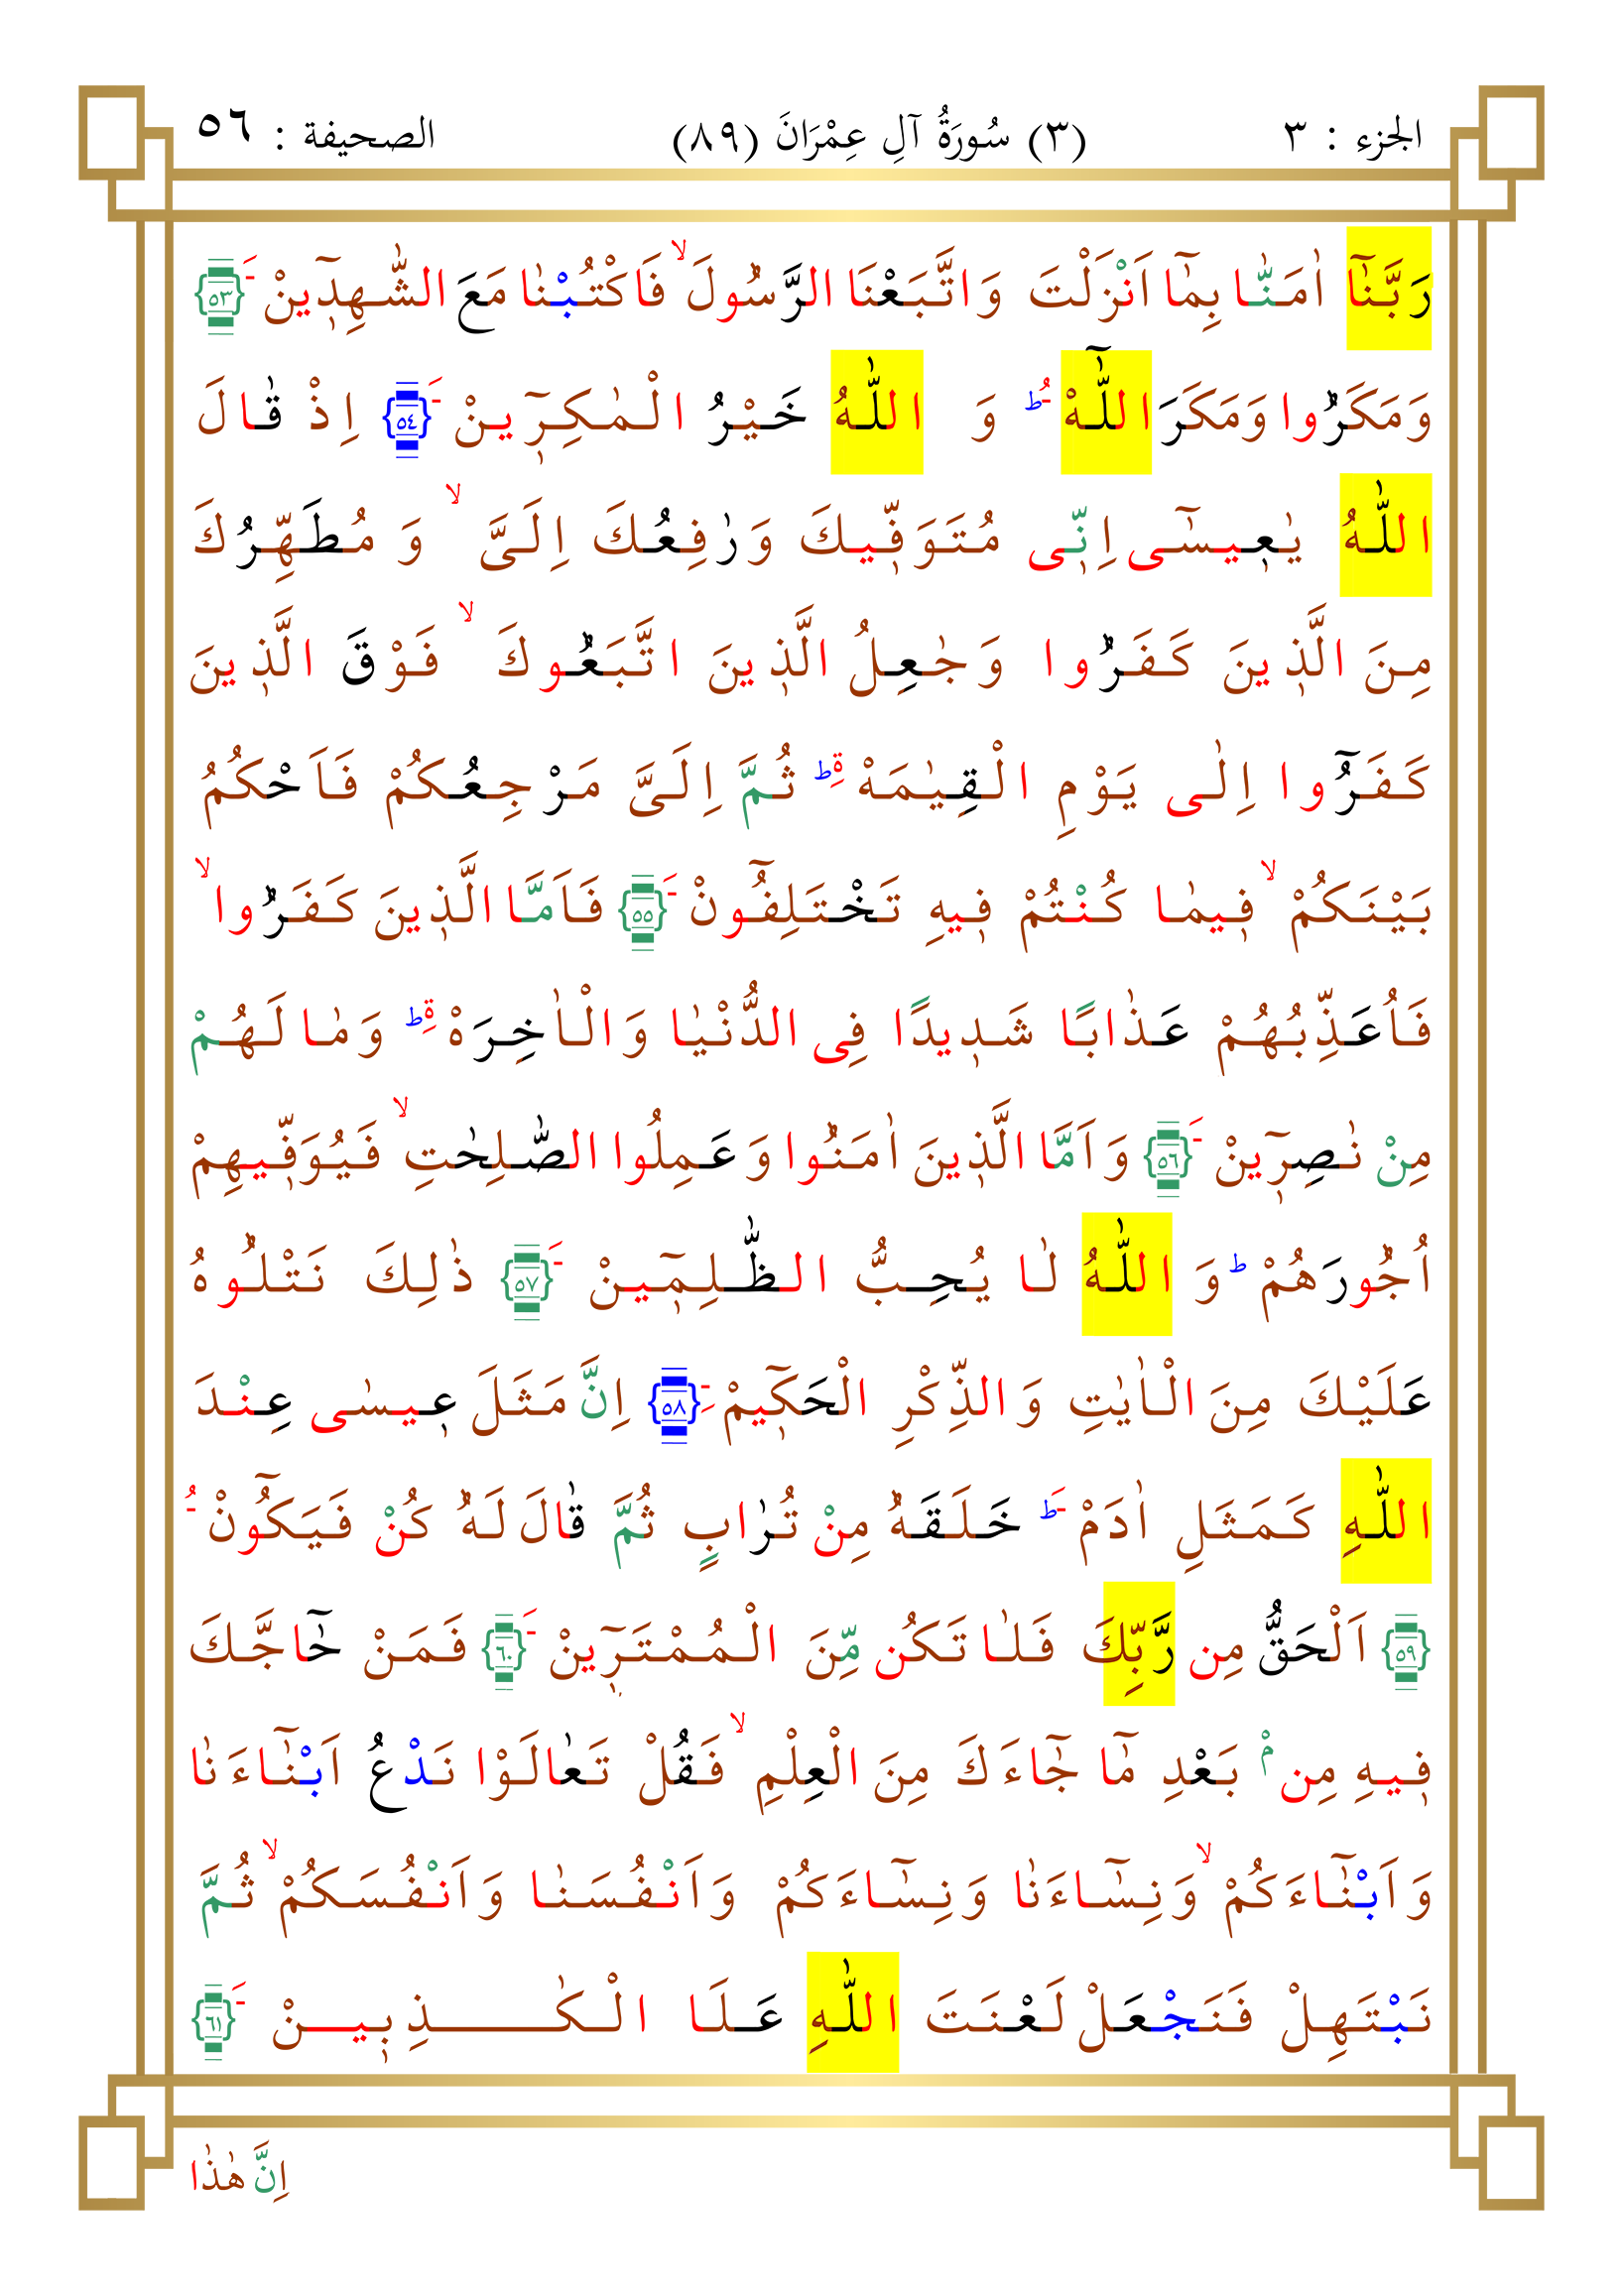 الجزء : ٣ (٣) سُورَةُ آلِ عِمْرَانَ (٨٩) الصحيفة : ٥٦
رَبَّنَٓا اٰمَنَّا بِمَٓا اَنْزَلْتَ وَاتَّبَعْنَا الرَّسُولَ ۙ فَاكْتُبْنَا مَعَ الشّٰهِدٖٓينْ َ ﴿٥٣﴾
وَمَكَرُوا وَمَكَرَ اللّٰٓهْ ُ ط وَ اللّٰهُ خَيْرُ الْمٰكِرٖٓينْ َ ﴿٥٤﴾ اِذْ قٰالَ
اللّٰهُ يٰعٖيسٰٓى اِنّٖى مُتَوَفّٖيكَ وَرٰفِعُكَ اِلَىَّ ۙ وَ مُطَهِّرُكَ
مِنَ الَّذٖينَ كَفَرُوا وَجٰعِلُ الَّذٖينَ اتَّبَعُوكَ ۙ فَوْقَ الَّذٖينَ
كَفَرُٓوا اِلٰى يَوْمِ الْقِيٰمَهْ ةِ ط ثُمَّ اِلَىَّ مَرْجِعُكُمْ فَاَحْكُمُ
بَيْنَكُمْ ۙ فٖيمٰا كُنْتُمْ فٖيهِ تَخْتَلِفُٓونْ َ ﴿٥٥﴾ فَاَمَّا الَّذٖينَ كَفَرُوا ۙ
فَاُعَذِّبُهُمْ عَذٰابًا شَدٖيدًا فِى الدُّنْيٰا وَالْاٰخِرَهْ ةِ ط وَمٰا لَهُمْ
مِنْ نٰصِرٖٓينْ َ ﴿٥٦﴾ وَاَمَّا الَّذٖينَ اٰمَنُوا وَعَمِلُوا الصّٰلِحٰتِ ۙ فَيُوَفّٖيهِمْ
اُجُورَهُمْ ط وَ اللّٰهُ لٰا يُحِبُّ الظّٰلِمٖٓينْ َ ﴿٥٧﴾ ذٰلِكَ نَتْلُوهُ
عَلَيْكَ مِنَ الْاٰيٰتِ وَالذِّكْرِ الْحَكٖٓيمْ ِ ﴿٥٨﴾ اِنَّ مَثَلَ عٖيسٰى عِنْدَ
اللّٰهِ كَمَثَلِ اٰدَمْ َ ط خَلَقَهُ مِنْ تُرٰابٍ ثُمَّ قٰالَ لَهُ كُنْ فَيَكُٓونْ ُ
﴿٥٩﴾ اَلْحَقُّ مِن رَّبِّكَ فَلٰا تَكُن مِّنَ الْمُمْتَرٖٓينْ َ ﴿٦٠﴾ فَمَنْ حَٓاجَّكَ
فٖيهِ مِن ْم بَعْدِ مَٓا جَٓاءَكَ مِنَ الْعِلْمِ ۙ فَقُلْ تَعٰالَوْا نَدْعُ اَبْنَٓاءَنٰا
وَاَبْنَٓاءَكُمْ ۙ وَنِسَٓاءَنٰا وَنِسَٓاءَكُمْ وَاَنْفُسَنٰا وَاَنْفُسَكُمْ ۙ ثُمَّ
نَبْتَهِلْ فَنَجْعَلْ لَعْنَتَ اللّٰهِ عَلَا الْكٰذِبٖينْ َ ﴿٦١﴾
اِنَّ هٰذٰا